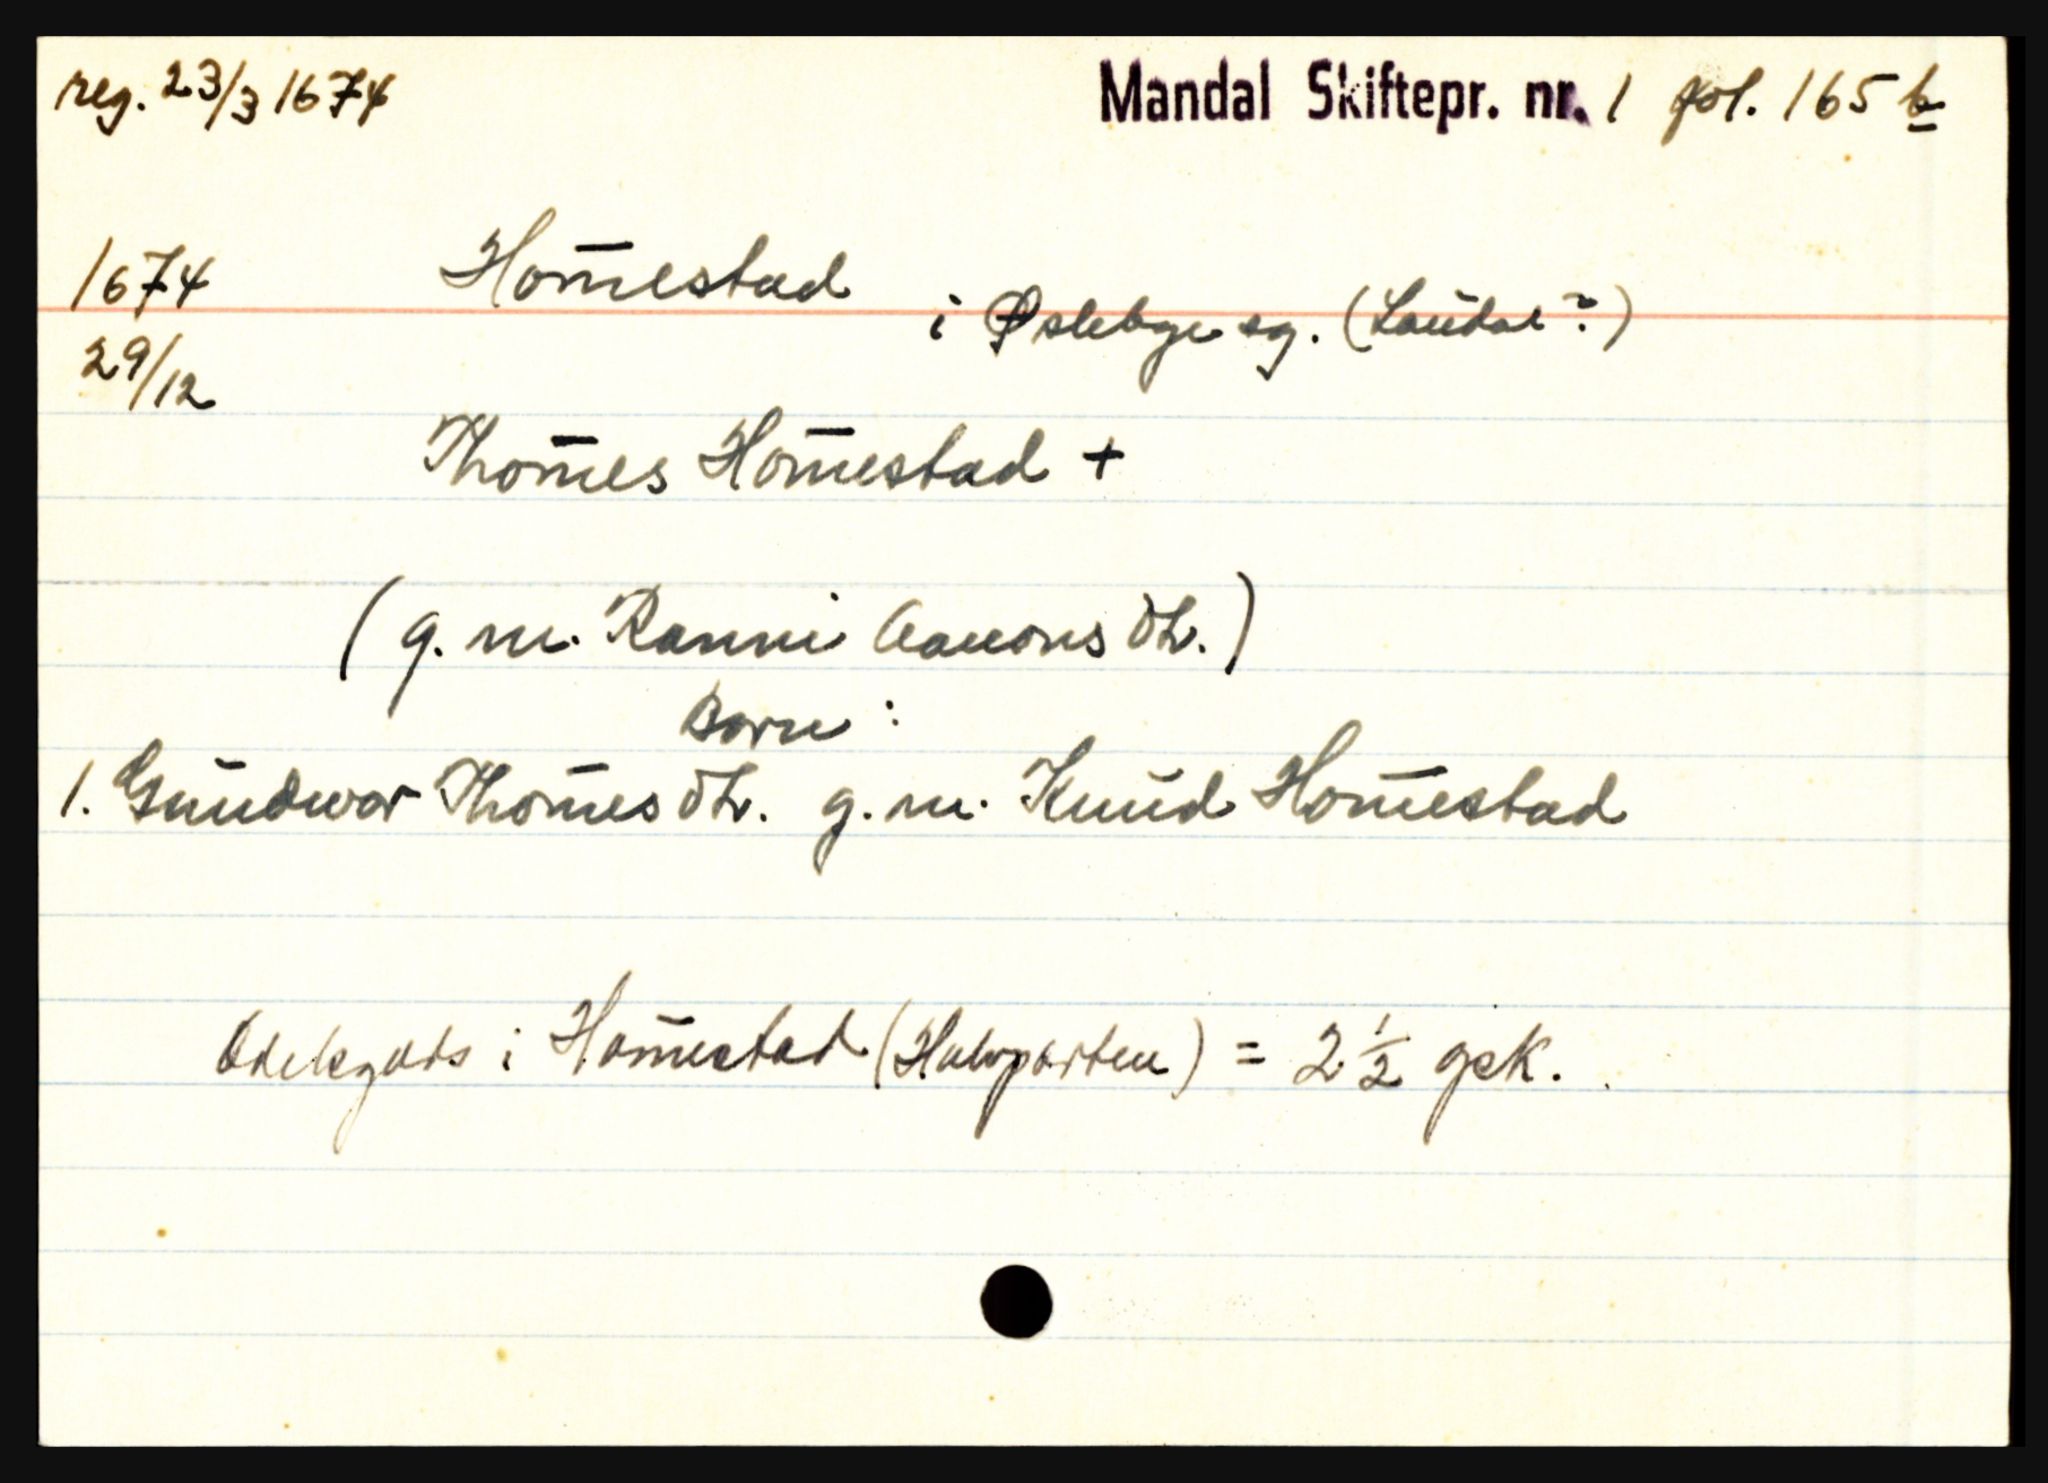 reg. 23/3 1674
Mandal Skiftepr. nr. 1 fol. 165 b
1674
29/12
Hom̄estad
i Øslebye sg. (Laudal?)
Thom̄es Hom̄estad +
(g. m. Ranni Aanons dtr.)
Barn:
1. Gundwor Thom̄es dtr. g. m. Knud Hom̄estad
Odelsgods i Hom̄estad (Halvparten) = 2 ½ gsk.